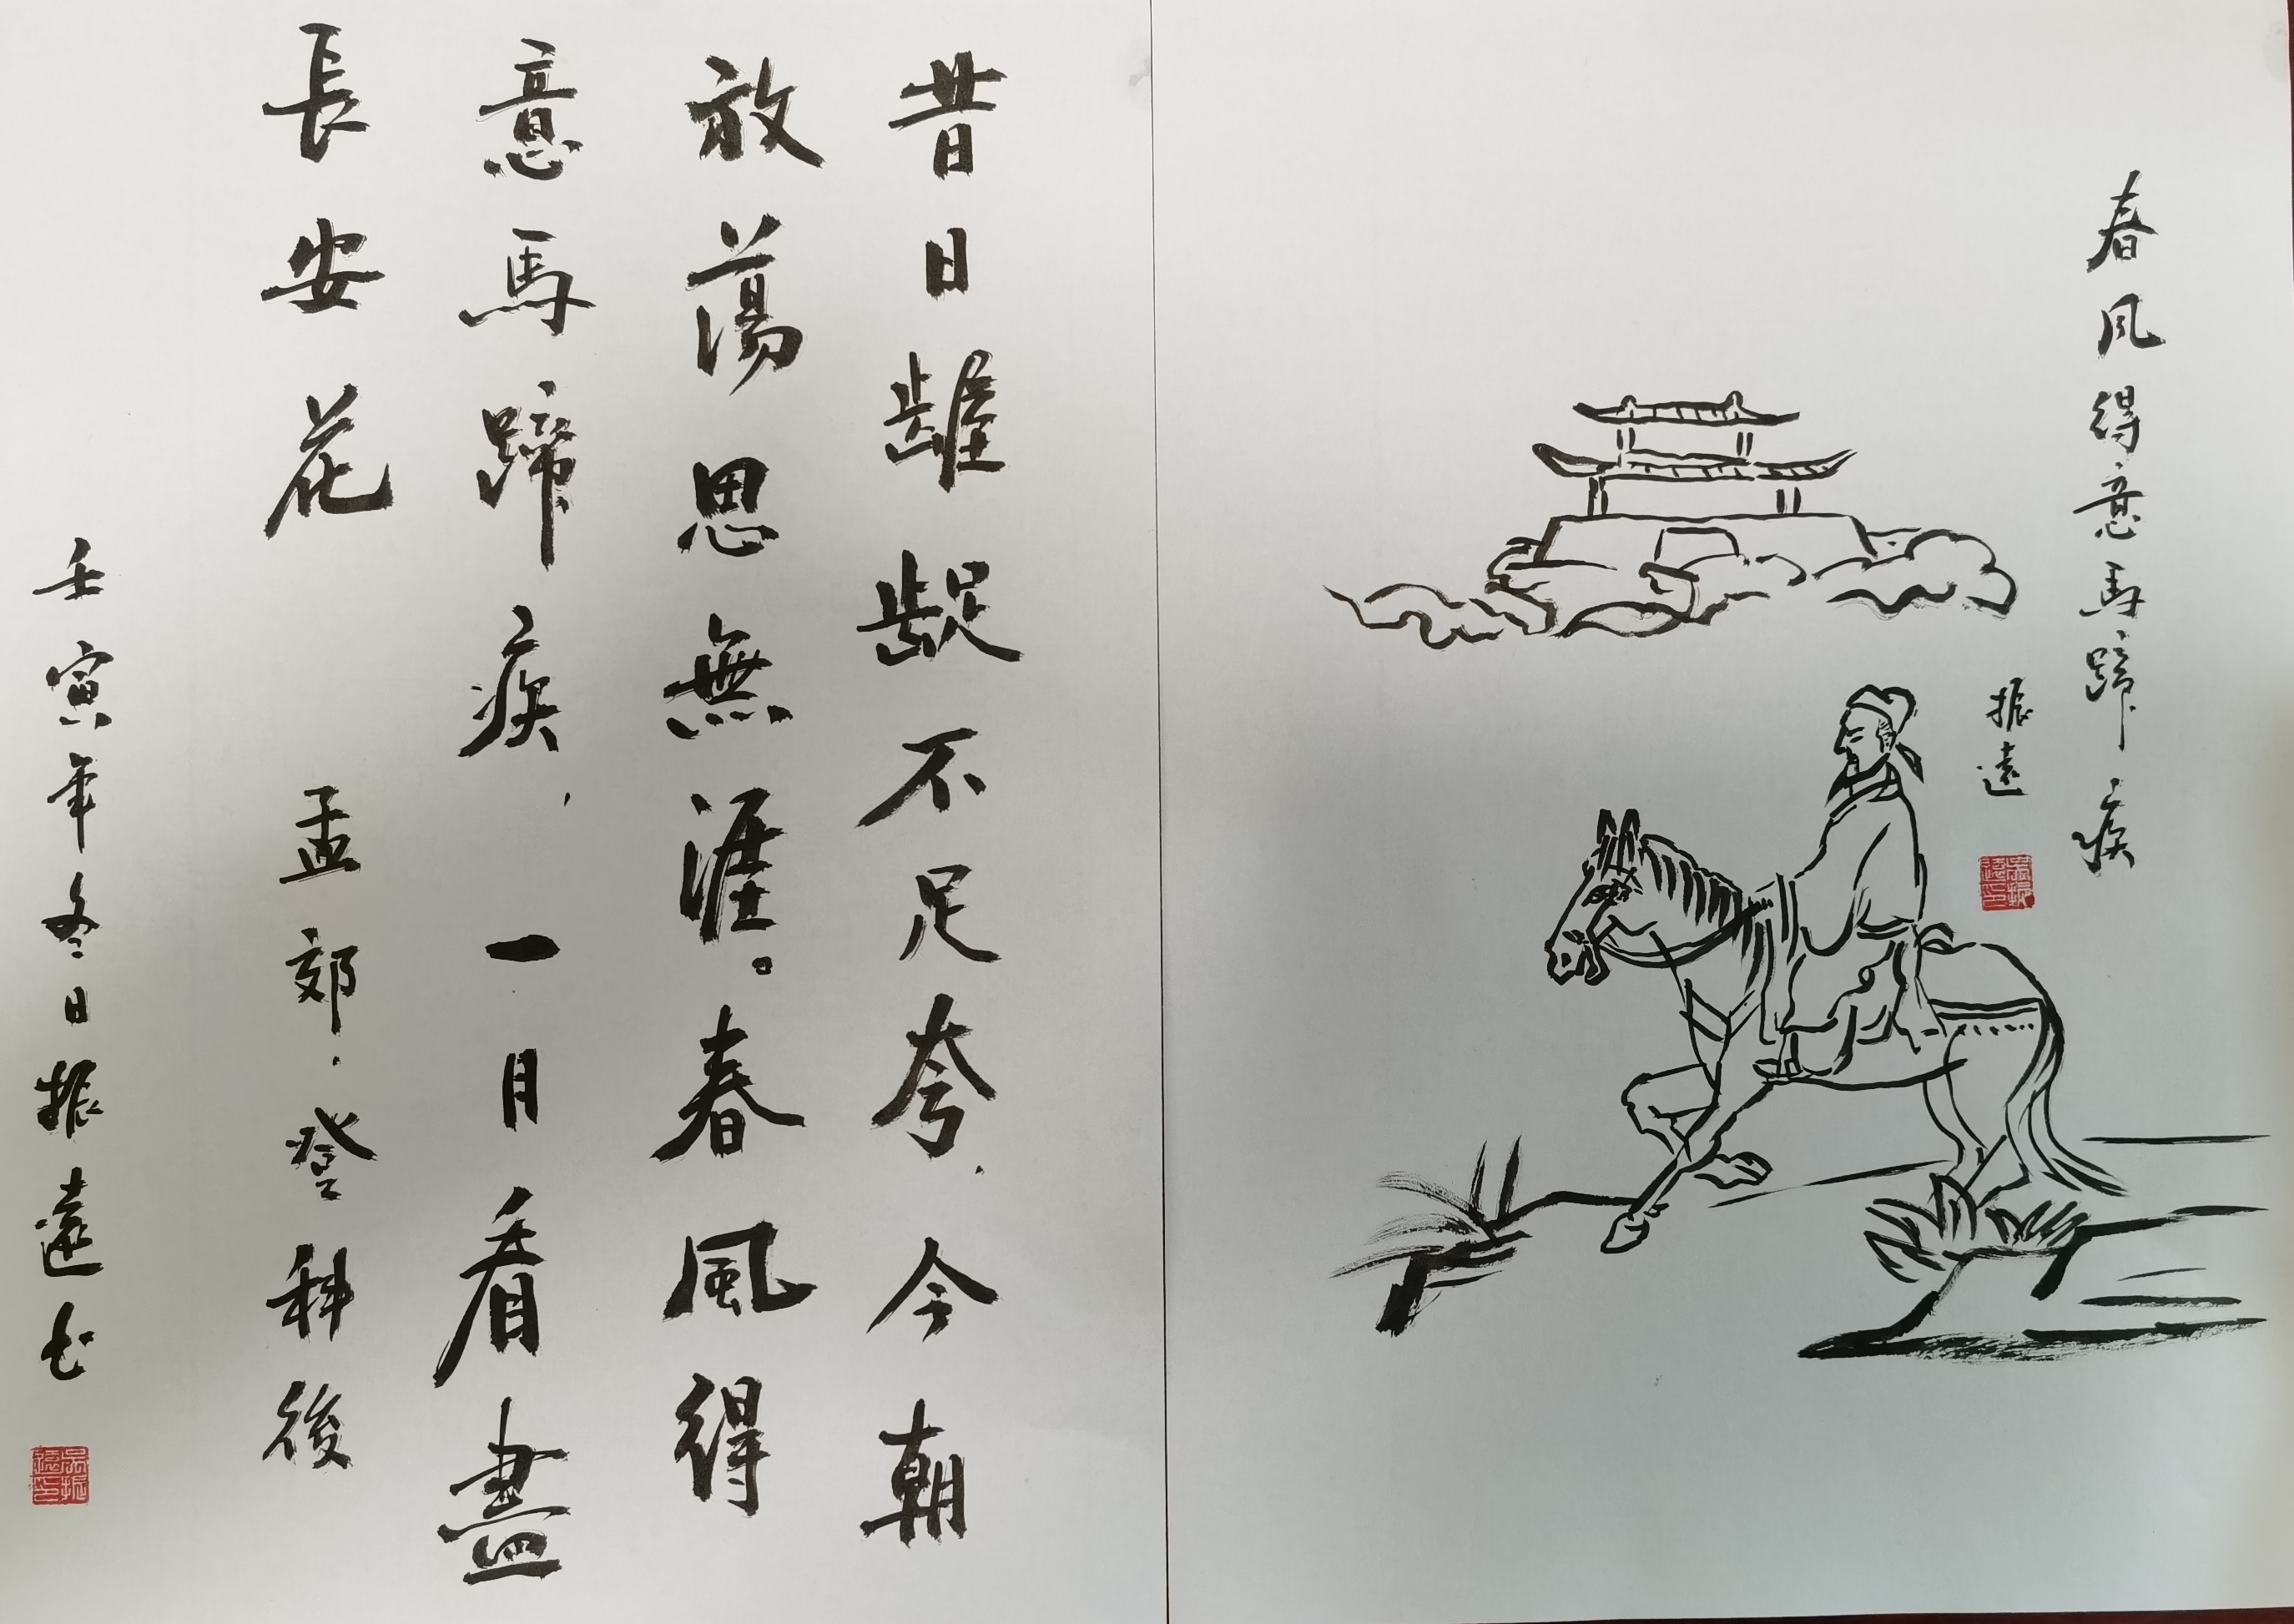 春风得意馬蹄疾
振遠
昔日齷齪不足夸，今朝
放蕩思無涯。春風得
意馬蹄疾，一月看盡
長安花 孟郊·登科後
壬寅年冬日振遠书